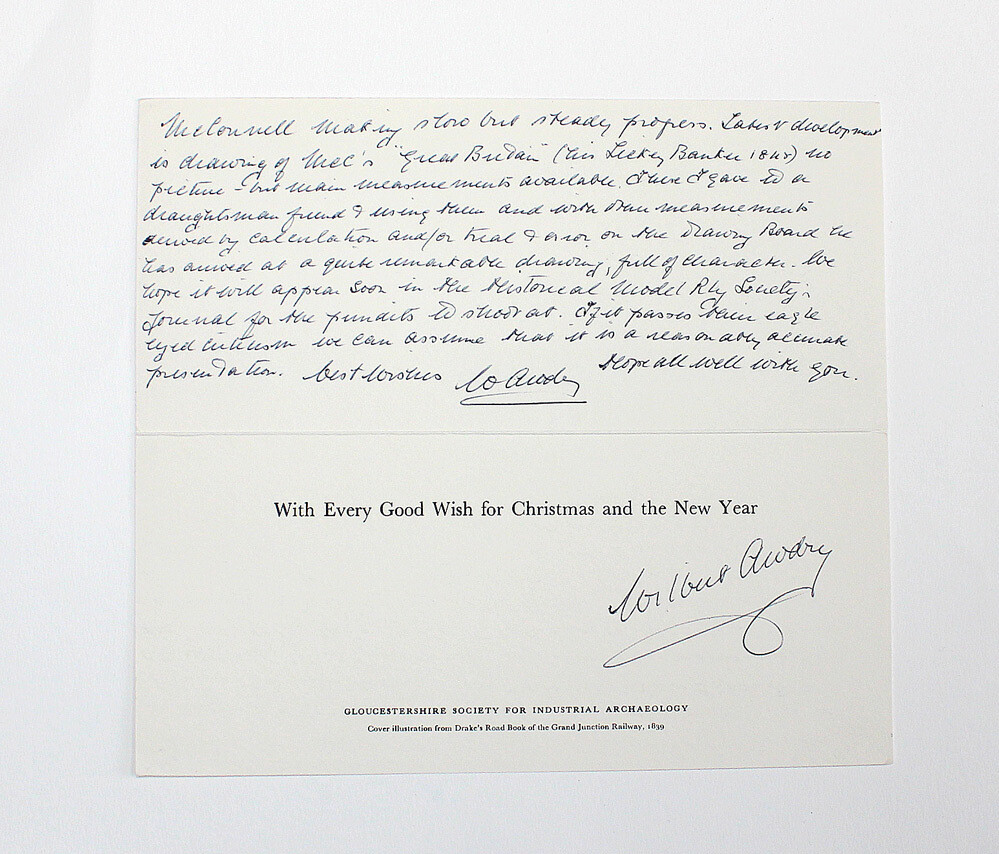 McConnell making slow but steady progress. Latest development
is drawing of McC's "Great Britain" (his Lickey Banker 1845) no
picture – but main measurements available. These I gave to a
draughtsman friend & using them and with other measurements
derived by calculation and/or trial & error on the Drawing Board he
has arrived at a quite remarkable drawing, full of character. We
hope it will appear soon in the Historical Model Rly Society's
Journal for the pundits to shoot at. If it passes their eagle
eyed criticism we can assume that it is a reasonably accurate
presentation. Best wishes W Awdry Hope all well with you.
With Every Good Wish for Christmas and the New Year
Wilbert Awdry
GLOUCESTERSHIRE SOCIETY FOR INDUSTRIAL ARCHAEOLOGY
Cover illustration from Drake's Road Book of the Grand Junction Railway, 1839